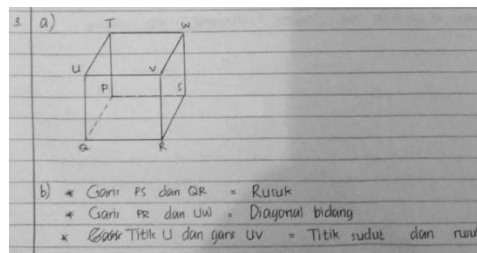 3. a)
T W
U V
P S
Q R
b) * Garis PS dan QR = Rusuk
* Garis PR dan UW = Diagonal bidang
* Titik U dan garis UV = Titik sudut dan rusu